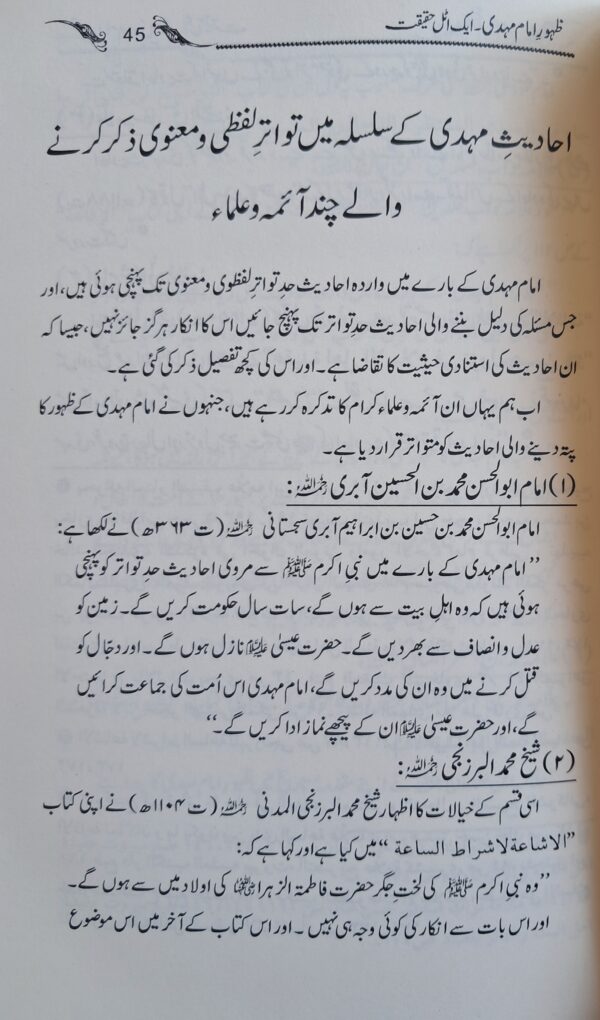 ظہورِ امام مہدی۔ ایک اٹل حقیقت
45
احادیثِ مہدی کے سلسلہ میں تواترِ لفظی و معنوی ذکر کرنے
والے چند آئمہ و علماء
امام مہدی کے بارے میں وارده احادیث حدِ تواترِ لفظوی و معنوی تک پہنچی ہوئی ہیں، اور
جس مسئلہ کی دلیل بننے والی احادیث حدِ تواتر تک پہنچ جائیں اس کا انکار ہرگز جائز نہیں، جیسا کہ
ان احادیث کی استنادی حیثیت کا تقاضا ہے۔ اور اس کی کچھ تفصیل ذکر کی گئی ہے۔
اب ہم یہاں ان آئمہ و علماء کرام کا تذکرہ کر رہے ہیں، جنہوں نے امام مہدی کے ظہور کا
پتہ دینے والی احادیث کو متواتر قرار دیا ہے۔
(۱) امام ابوالحسن محمد بن الحسین آبری رحمہ اللہ:
امام ابوالحسن محمد بن حسین بن ابراہیم آبری سجستانی رحمہ اللہ (ت ۳۶۳ھ) نے لکھا ہے:
”امام مہدی کے بارے میں نبی اکرم ﷺ سے مروی احادیث حدِ تواتر کو پہنچی
ہوئی ہیں کہ وہ اہلِ بیت سے ہوں گے، سات سال حکومت کریں گے۔ زمین کو
عدل و انصاف سے بھر دیں گے۔ حضرت عیسیٰ علیہ السلام نازل ہوں گے۔ اور دجّال کو
قتل کرنے میں وہ ان کی مدد کریں گے، امام مہدی اس اُمت کی جماعت کرائیں
گے، اور حضرت عیسیٰ علیہ السلام ان کے پیچھے نماز ادا کریں گے۔“
(۲) شیخ محمد البرزنجی رحمہ اللہ:
اسی قسم کے خیالات کا اظہار شیخ محمد البرزنجی المدنی رحمہ اللہ (ت ۱۱۰۴ھ) نے اپنی کتاب
”الاشاعة لاشراط الساعة“ میں کیا ہے اور کہا ہے کہ:
”وہ نبی اکرم ﷺ کی لختِ جگر حضرت فاطمۃ الزہرا رضی اللہ عنہا کی اولاد میں سے ہوں گے۔
اور اس بات سے انکار کی کوئی وجہ ہی نہیں۔ اور اس کتاب کے آخر میں اس موضوع